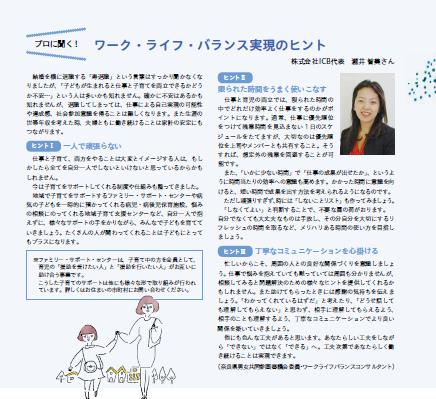 プロに聞く！
ワーク・ライフ・バランス実現のヒント
株式会社ICB代表　瀧井 智美さん
結婚を機に退職する「寿退職」という言葉はすっかり聞かなくな
りましたが、「子どもが生まれると仕事と子育てを両立できるかどう
か不安…」という人は多いかも知れません。確かに不安はあるかも
知れませんが、退職してしまっては、仕事による自己実現の可能性
や達成感、社会参加意識を得ることは難しくなります。また生涯の
世帯年収を考えた時、夫婦ともに働き続けることは家計の安定にも
つながります。
ヒントⅠ　一人で頑張らない
仕事と子育て、両方をやることは大変とイメージする人は、もし
かしたら全てを自分一人でしないといけないと思っているからかも
しれません。
今は子育てをサポートしてくれる制度や仕組みも整ってきました。
地域で子育てをサポートするファミリー・サポート・センターや病
気の子どもを一時的に預かってくれる病児・病後児保育施設、悩み
の相談にのってくれる地域子育て支援センターなど、自分一人で抱
えずに、様々なサポートの手をかりながら、みんなで子どもを育てて
いきましょう。たくさんの人が関わってくれることは子どもにとって
もプラスになります。
※ファミリー・サポート・センターは、子育て中の方を会員として、
育児の「援助を受けたい人」と「援助を行いたい人」がお互いに
助け合う事業です。
こうした子育てのサポートは他にも様々な形で取り組みが行われ
ています。詳しくはお住まいの市町村にお問い合わせください。
ヒントⅡ
限られた時間をうまく使いこなす
仕事と育児の両立では、限られた時間の
中でどれだけ効率よく仕事をするのかがポ
イントになります。通常、仕事に優先順位
をつけて残業時間を見込まない１日のスケ
ジュールをたてますが、大切なのは優先順
位を上司やメンバーとも共有すること。そう
すれば、想定外の残業を回避することが可
能です。
また、「いかに少ない時間」で「仕事の成果が出せたか」、というよ
うに時間当たりの効率への意識も高めます。かかった時間に意識を向
けると、短い時間で成果を出す方法を考えられるようになるのです。
ただし頑張りすぎず、時には「しないことリスト」も作ってみましょう。
「しなくてよい」と判断することで、不要な肩の荷がおります。
自分でなくても大丈夫なものは手放し、その分自分を大切にするリ
フレッシュの時間を取るなど、メリハリある時間の使い方を目指しま
しょう。
ヒントⅢ　丁寧なコミュニケーションを心掛ける
忙しいからこそ、周囲の人との良好な関係づくりを意識しましょ
う。仕事で悩みを抱えていても黙っていては周囲も分かりませんが、
相談してみると問題解決のための様々なヒントを提供してくれるか
もしれません。また助けてもらったときには感謝の気持ちを伝えま
しょう。「わかってくれているはずだ」と考えたり、「どうせ話して
も理解してもらえない」と思わず、相手に理解してもらえるよう、
相手のことも理解するよう、丁寧なコミュニケーションでより良い
関係を築いていきましょう。
他にも色んな工夫があると思います。あたらしい工夫をしなが
ら「できない」ではなく「できる」へ。工夫次第であたらしく働
き続けることは実現できます。
（奈良県男女共同参画審議会委員・ワークライフバランスコンサルタント）